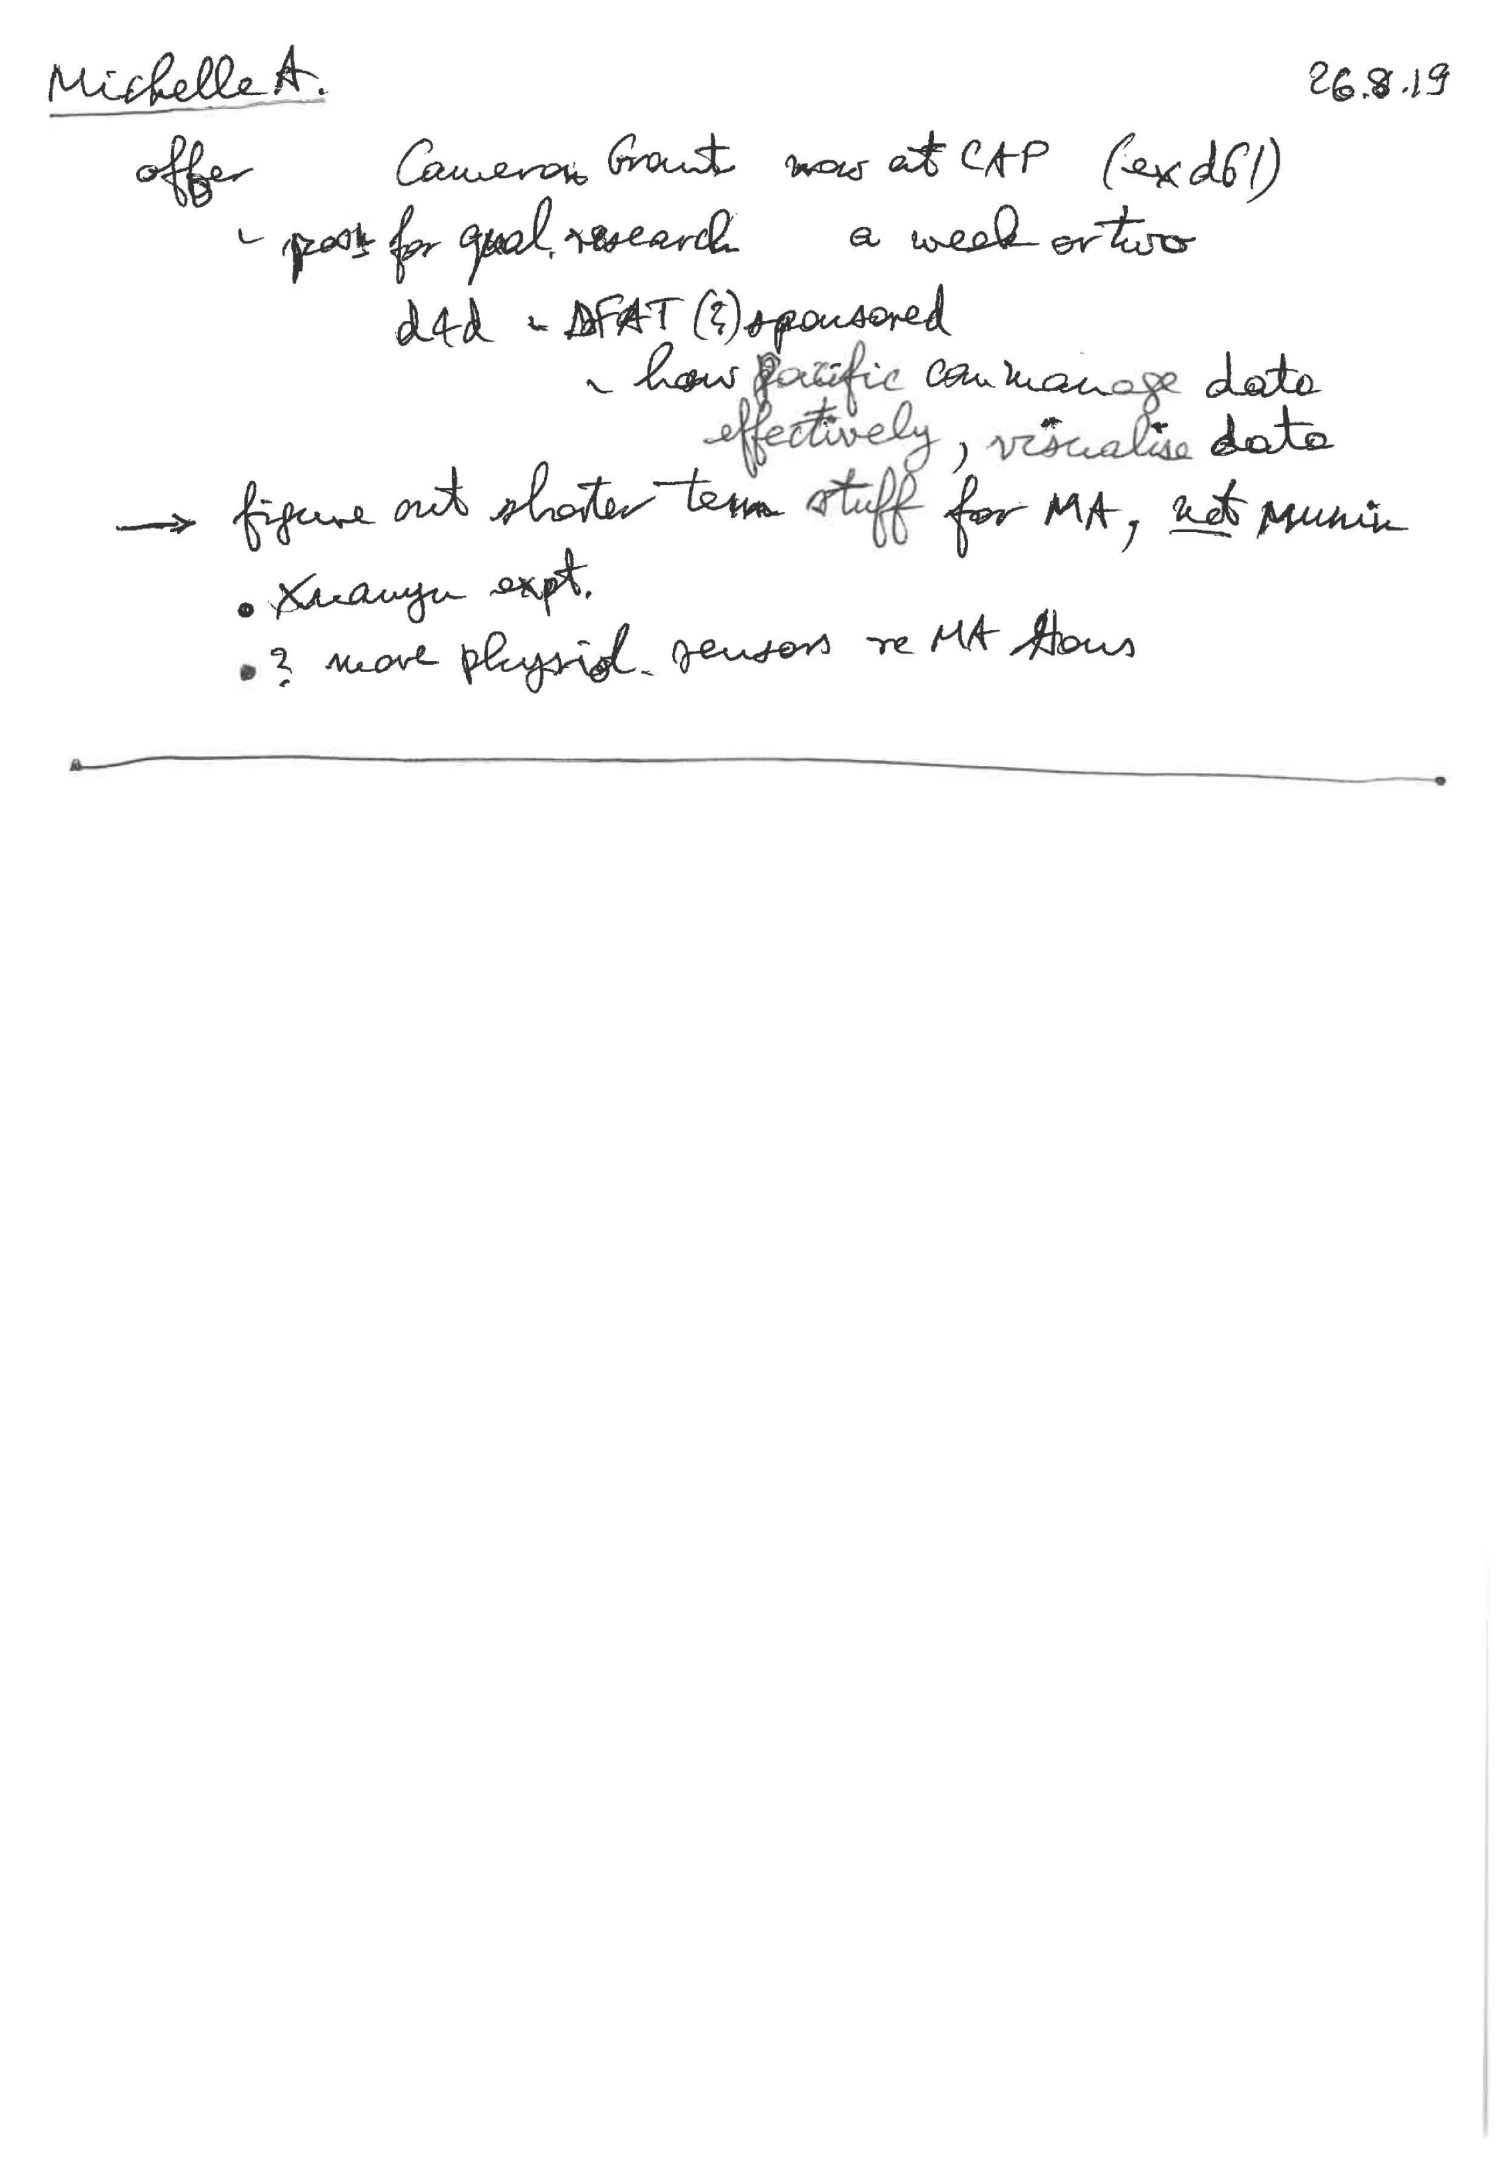 Michelle A. 26.8.19
offer Cameron Grant now at CAP (ex d61)
- for qual. research a week or two
d4d - DFAT (?) sponsored
- how Pacific can manage data
effectively, visualise data
→ figure out shorter term stuff for MA, not Munin
• Xuanyu expt.
• ? more physiol. sensors re MA Hons